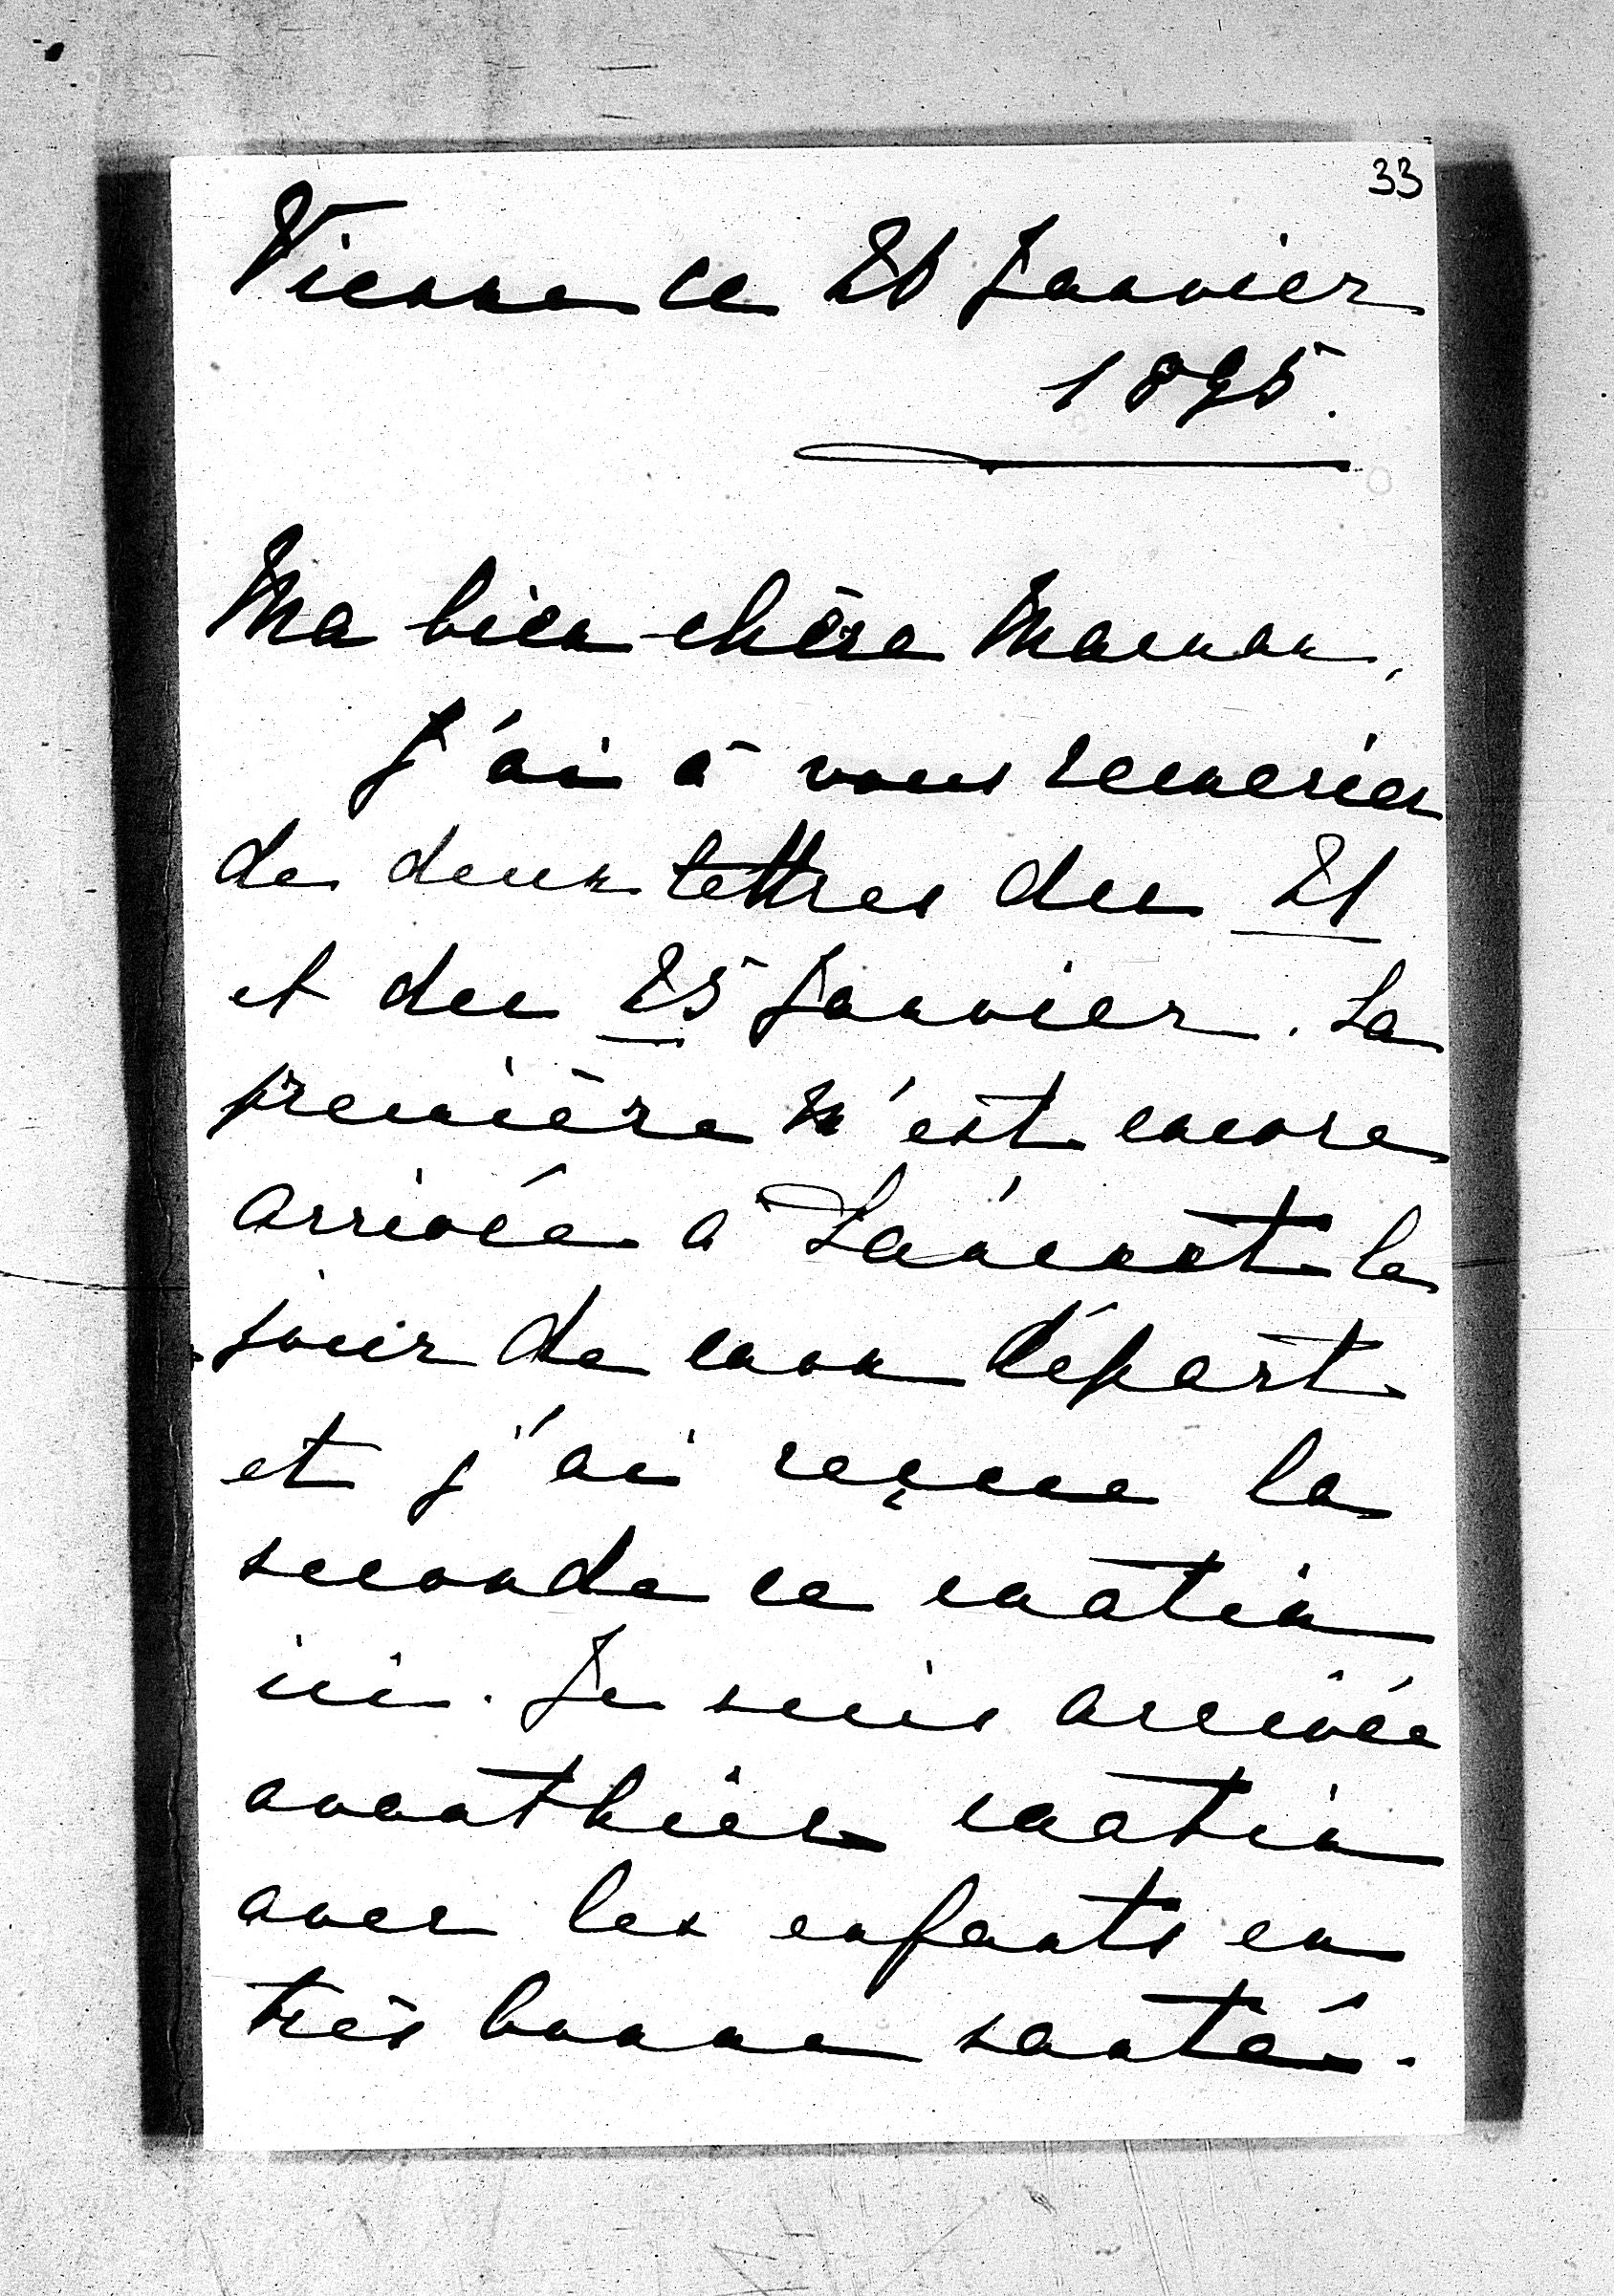 33
Vienne ce 26 Janvier
1895.
Ma bien chère Maman,
J'ai à vous remercier
de deux lettres du 21
et du 25 Janvier. La
première m'est encore
arrivée à Láncut le
jour de mon départ
et j'ai reçue la
seconde ce matin
ici. Je suis arrivée
avanthier matin
avec les enfants en
très bonne santé.